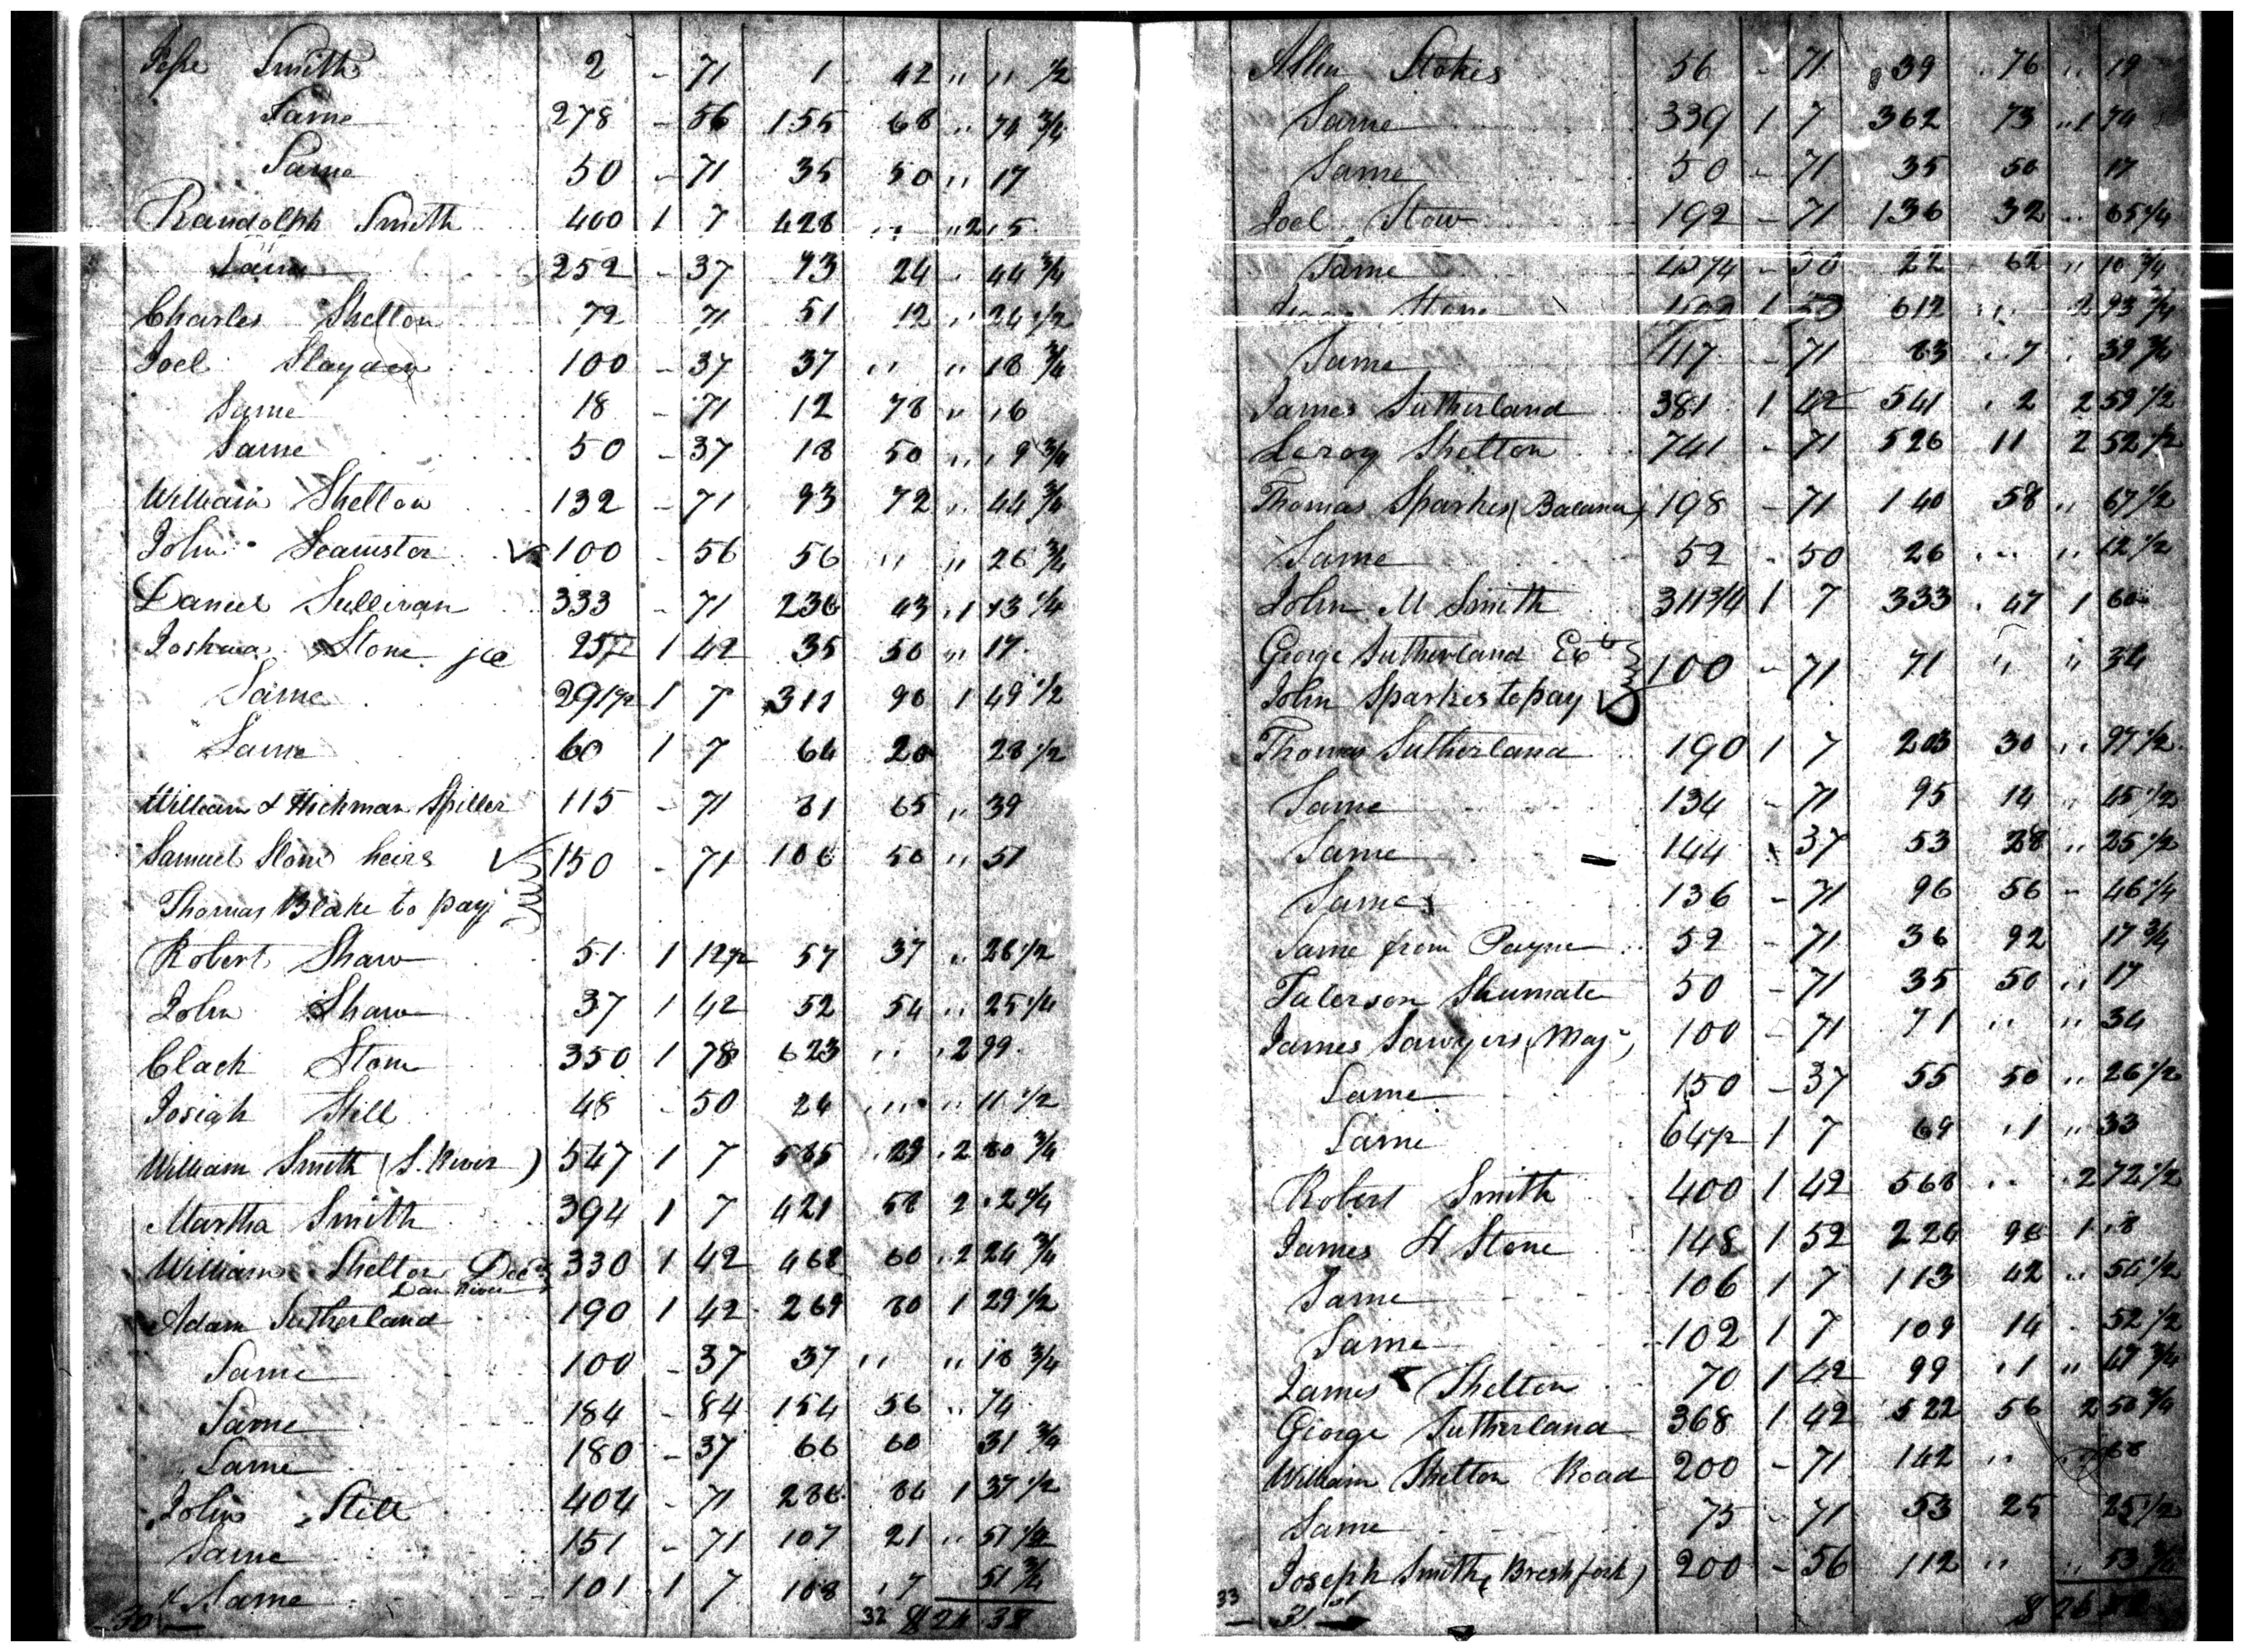 Jesse Smith 2 - 71 1 42 " " 1/2
Same 278 - 56 155 68 " 74 3/4
Same 50 - 71 35 50 " 17
Randolph Smith 400 1 7 428 " " 2 " 5
Same 252 - 37 93 24 " 44 3/4
Charles Shelton 72 71 51 12 " 24 1/2
Joel Slayden 100 - 37 37 " " 18 3/4
Same 18 - 71 12 78 " " 6
Same 50 - 37 18 50 " " 9 3/4
William Shelton 132 - 71 93 72 " 44 3/4
John Seamster 100 - 56 56 " " 26 3/4
Daniel Sullivan 333 - 71 236 43 " 1 13 1/4
Joshua Stone 1 42 35 50 " 17
Same 291 1/2 1 7 311 90 1 49 1/2
Same 60 1 7 64 20 28 1/2
William & Hickman Spiller 115 - 71 81 65 " 39
Samuel Stone heirs 150 - 71 106 50 " 51
Thomas Blake to pay
Robert Shaw 51 1 12 1/2 57 37 " 26 1/2
John Shaw 37 1 42 52 54 " 25 1/4
Clack Stone 350 1 78 623 " " 2 99
Josiah Still 48 - 50 24 " " 11 1/2
William Smith (S. River) 547 1 7 585 " 29 " 2 80 3/4
Martha Smith 394 1 7 421 58 2 " 2 1/4
William Shelton Decd 330 1 42 468 60 " 2 24 3/4
Dan River
Adam Sutherland 190 1 42 269 80 1 29 1/2
Same 100 - 37 37 " " 18 3/4
Same 184 - 84 154 56 " 74
Same 180 - 37 66 60 31 3/4
John Still 404 - 71 286 84 1 37 1/2
Same 151 - 71 107 21 " 51 1/2
Same 101 1 7 108 " 7 51 3/4
30 32 $ 24 38
Allen Stokes 56 - 71 39 76 " 19
Same 339 1 7 362 73 " 1 74
Same 50 - 71 35 50 17
Joel Stow 192 - 71 136 32 " 65 1/4
Same - 50 22 62 " 10 3/4
Stone 1 612 " " 2 93 3/4
Same 117 - 71 83 " 7 39 3/4
James Sutherland 381 1 42 541 " 2 2 59 1/2
Leroy Shelton 741 - 71 526 11 2 52 1/2
Thomas Sparkes (Balance) 198 - 71 140 58 " 67 1/2
Same 52 - 50 26 " " " 12 1/2
John M Smith 311 3/4 1 7 333 " 47 1 60
George Sutherland Exr
100 - 71 71 " " 34
John Sparkes to pay
Thomas Sutherland 190 1 7 203 30 " 97 1/2
Same 134 - 71 95 14 " 45 1/2
Same 144 - 37 53 28 " 25 1/2
Same 136 - 71 96 56 - 46 1/4
Same from Payne 52 - 71 36 92 17 3/4
Paterson Shumate 50 - 71 35 50 " 17
James Sawyers (Majr) 100 - 71 71 " " 34
Same 150 - 37 55 50 " 26 1/2
Same 64 1/2 1 7 69 " 1 " 33
Robert Smith 400 1 42 568 " " 2 72 1/2
James H Stone 148 1 52 224 96 1 " 8
Same 106 1 7 113 42 " 54 1/2
Same 102 1 7 109 14 52 1/2
James Shelton 70 1 42 99 " 1 " 47 3/4
George Sutherland 368 1 42 522 56 2 50 3/4
William Shelton Road 200 - 71 142 " " 68
Same 75 - 71 53 25 25 1/2
Joseph Smith (Breshfork) 200 - 56 112 " " 53 3/4
33 31 $ 26